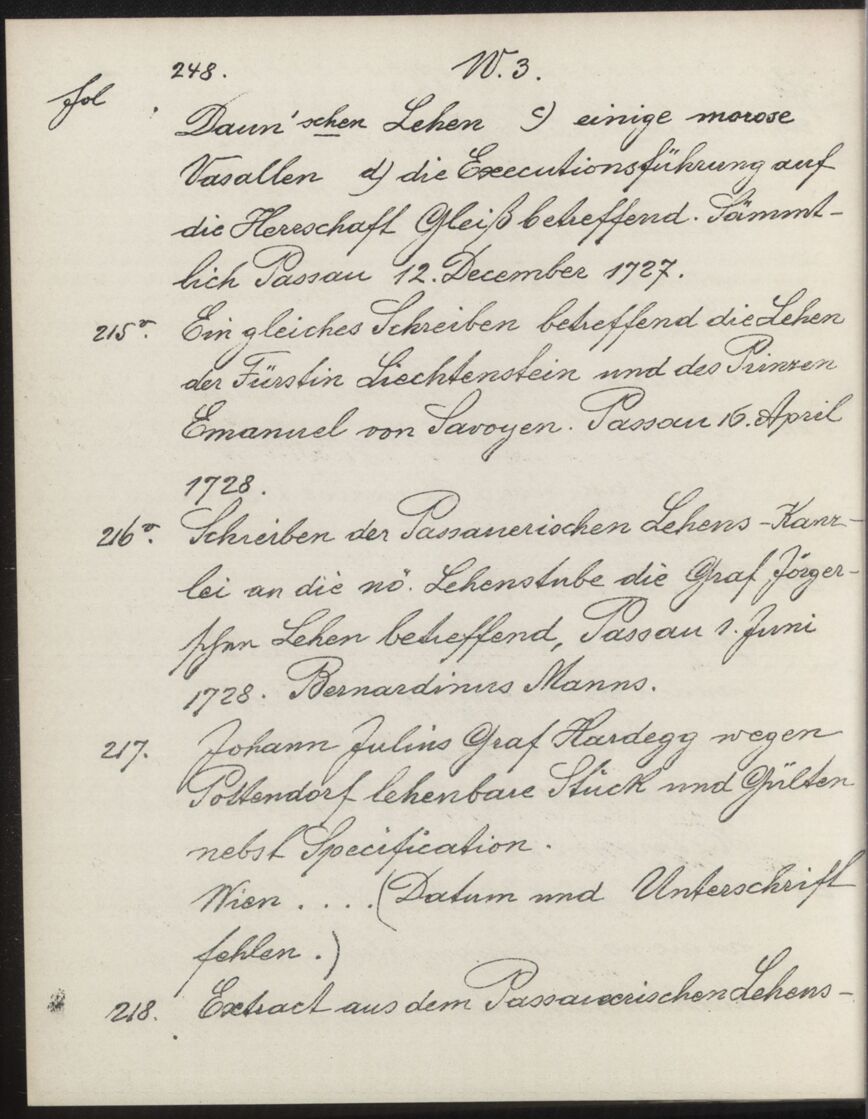 248. W. 3.
fol
Daun'schen Lehen c) einige morose
Vasallen d) die Executionsführung auf
die Herrschaft Gleiß betreffend. Sämmt-
lich Passau 12. December 1727.
215v. Ein gleiches Schreiben betreffend die Lehen
der Fürstin Liechtenstein und des Prinzen
Emanuel von Savoyen. Passau 16. April
1728.
216v. Schreiben der Passauerischen Lehens-Kanz-
lei an die nö. Lehenstube die Graf Jörger-
schen Lehen betreffend, Passau 1. Juni
1728. Bernardinus Manns.
217. Johann Julius Graf Hardegg wegen
Pottendorf lehenbare Stück und Gülten
nebst Specification.
Wien . . . . (Datum und Unterschrift
fehlen.)
218. Extract aus dem Passauerischen Lehens-